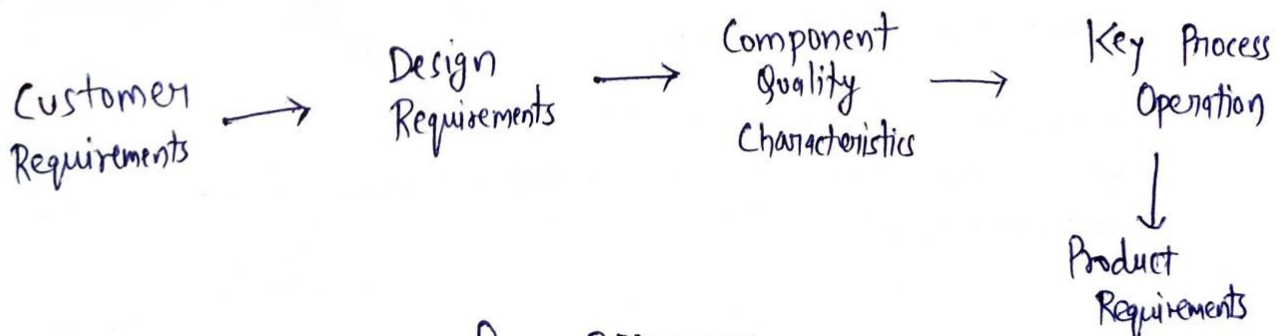 Customer
Requirements
Design
Requirements
Component
Quality
Characteristics
Key Process
Operation
Product
Requirements